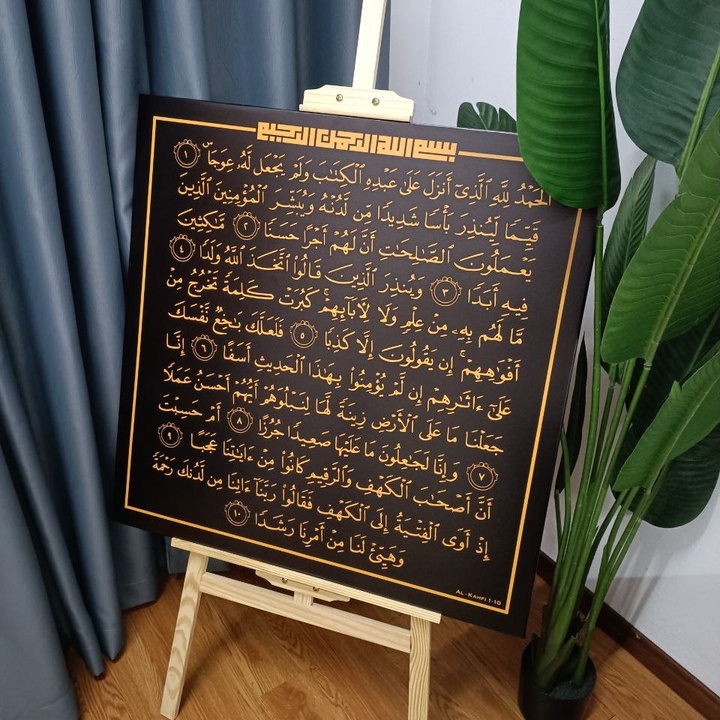 بسم الله الرحمن الرحيم
ٱلْحَمْدُ لِلَّهِ ٱلَّذِىٓ أَنزَلَ عَلَىٰ عَبْدِهِ ٱلْكِتَـٰبَ وَلَمْ يَجْعَل لَّهُۥ عِوَجَا ۜ ١
قَيِّمًا لِّيُنذِرَ بَأْسًا شَدِيدًا مِّن لَّدُنْهُ وَيُبَشِّرَ ٱلْمُؤْمِنِينَ ٱلَّذِينَ
يَعْمَلُونَ ٱلصَّـٰلِحَـٰتِ أَنَّ لَهُمْ أَجْرًا حَسَنًا ٢ مَّـٰكِثِينَ
فِيهِ أَبَدًا ٣ وَيُنذِرَ ٱلَّذِينَ قَالُوا۟ ٱتَّخَذَ ٱللَّهُ وَلَدًا ٤
مَّا لَهُم بِهِۦ مِنْ عِلْمٍ وَلَا لِـَٔابَآئِهِمْ ۚ كَبُرَتْ كَلِمَةً تَخْرُجُ مِنْ
أَفْوَٰهِهِمْ ۚ إِن يَقُولُونَ إِلَّا كَذِبًا ٥ فَلَعَلَّكَ بَـٰخِعٌ نَّفْسَكَ
عَلَىٰٓ ءَاثَـٰرِهِمْ إِن لَّمْ يُؤْمِنُوا۟ بِهَـٰذَا ٱلْحَدِيثِ أَسَفًا ٦ إِنَّا
جَعَلْنَا مَا عَلَى ٱلْأَرْضِ زِينَةً لَّهَا لِنَبْلُوَهُمْ أَيُّهُمْ أَحْسَنُ عَمَلًا
٧ وَإِنَّا لَجَـٰعِلُونَ مَا عَلَيْهَا صَعِيدًا جُرُزًا ٨ أَمْ حَسِبْتَ
أَنَّ أَصْحَـٰبَ ٱلْكَهْفِ وَٱلرَّقِيمِ كَانُوا۟ مِنْ ءَايَـٰتِنَا عَجَبًا ٩
إِذْ أَوَى ٱلْفِتْيَةُ إِلَى ٱلْكَهْفِ فَقَالُوا۟ رَبَّنَآ ءَاتِنَا مِن لَّدُنكَ رَحْمَةً
وَهَيِّئْ لَنَا مِنْ أَمْرِنَا رَشَدًا ١٠
AL-KAHFI 1-10